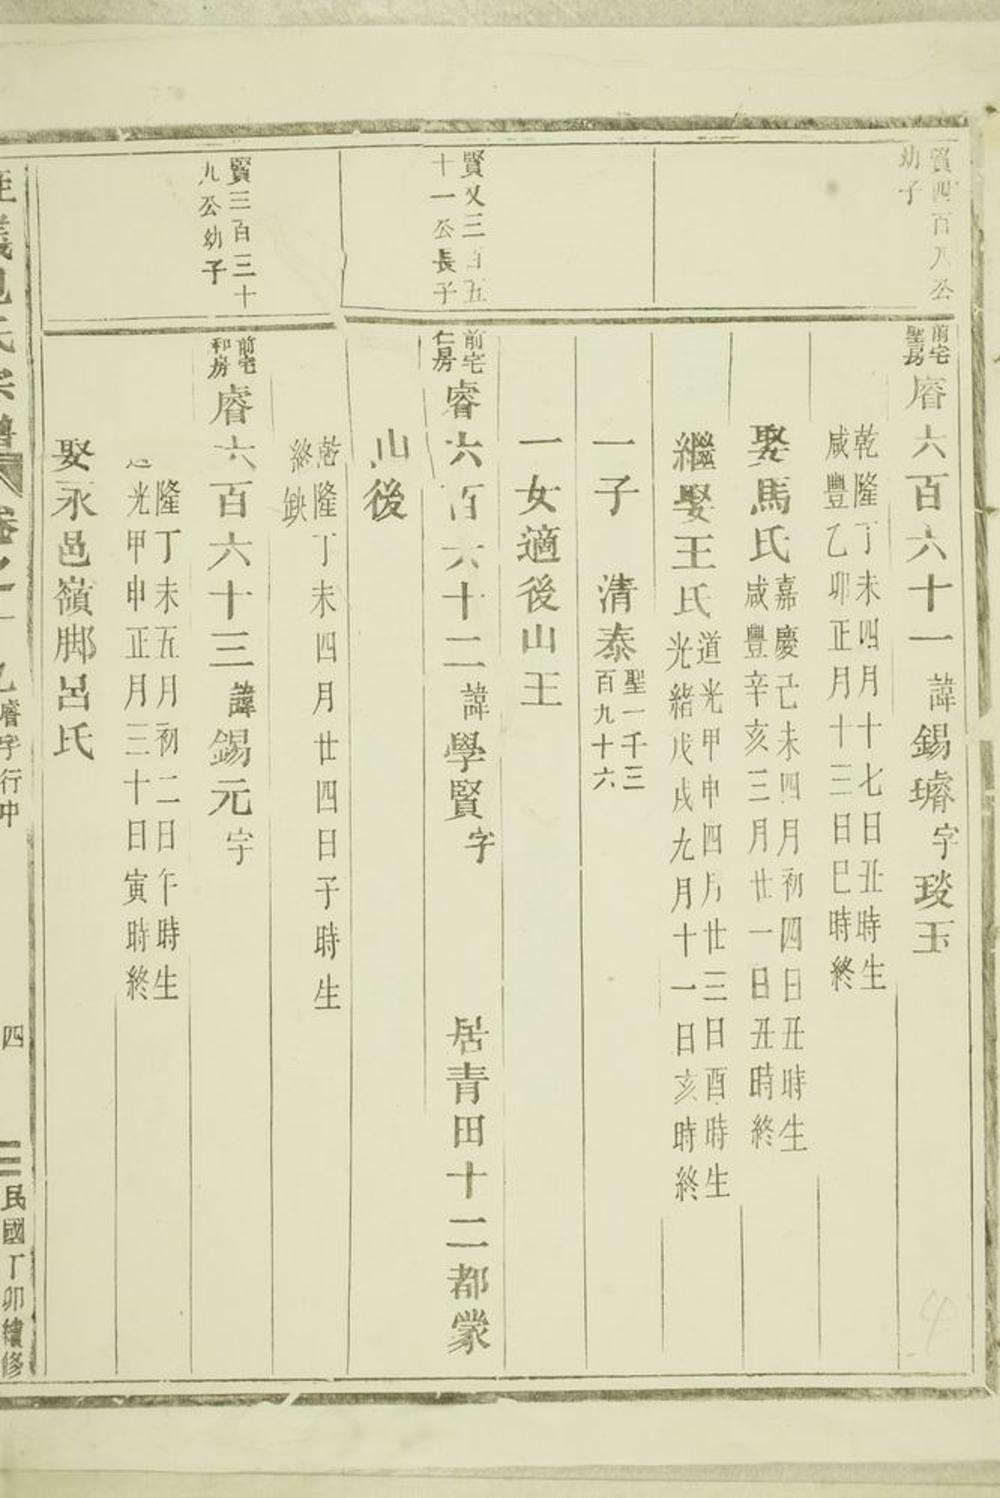 賢四百八公
幼子
前宅
聖房
睿六百六十一諱錫璿字琰玉
乾隆丁未四月十七日丑時生
咸豐乙卯正月十三日巳時終
娶馬氏
嘉慶己未四月初四日丑時生
咸豐辛亥三月廿一日丑時終
繼娶王氏
道光甲申四月廿三日酉時生
光緒戊戌九月十一日亥時終
一子　清泰
聖一千三
百九十六
一女適後山王
賢又三百五
十一公長子
前宅
仁房
睿六百六十二諱學賢字　　居青田十二都蒙
山後
乾隆丁未四月廿四日子時生
終缺
賢三百三十
九公幼子
前宅
和房
睿六百六十三諱錫元字
隆丁未五月初二日午時生
光甲申正月三十日寅時終
娶永邑嶺脚呂氏
氏宗譜　卷之　睿字行中　四　民國丁卯續修